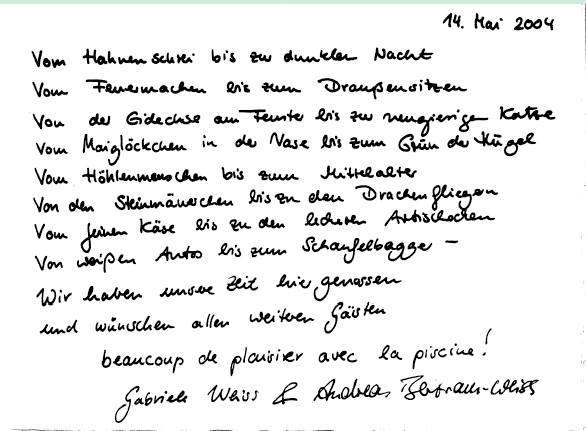 14. Mai 2004
Vom Hahnenschrei bis zur dunklen Nacht
Vom Feuermachen bis zum Draußensitzen
Von der Eidechse am Fenster bis zur neugierigen Katze
Vom Maiglöckchen in der Nase bis zum Grün der Hügel
Vom Höhlenmenschen bis zum Mittelalter
Von den Steinmäuerchen bis zu den Drachenfliegern
Vom feinen Käse bis zu den leckeren Artischocken
Von weißen Autos bis zum Schaufelbagger –
Wir haben unsere Zeit hier genossen
und wünschen allen weiteren Gästen
beaucoup de plaisirer avec la piscine!
Gabriele Weiss & Andreas